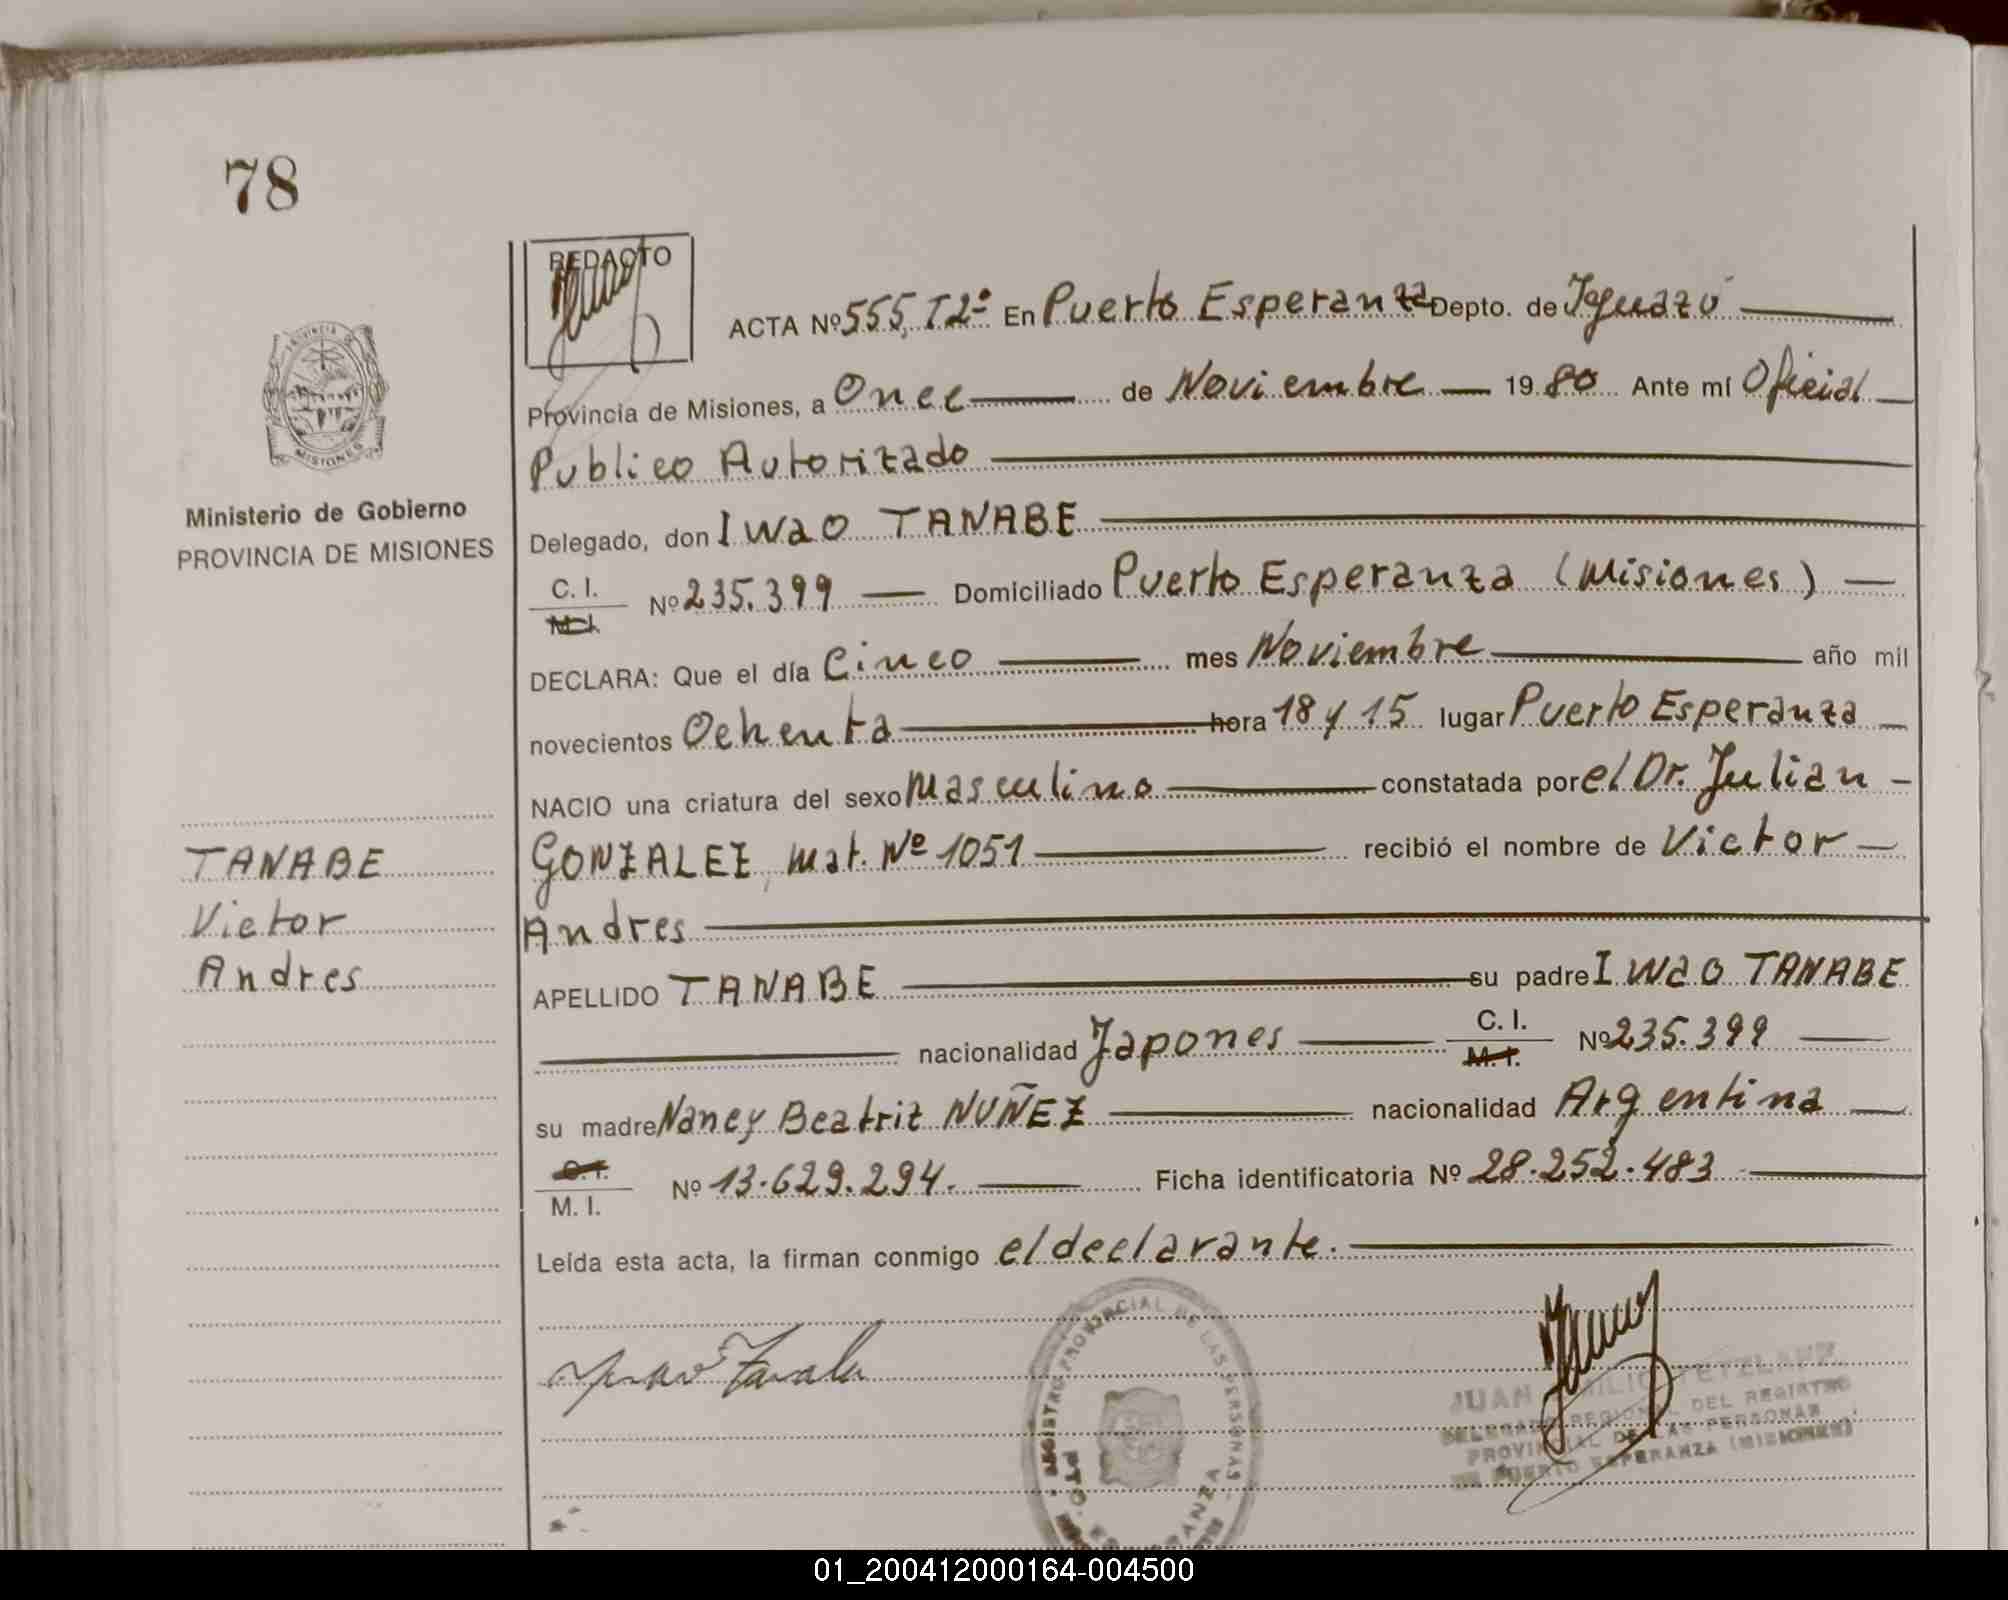 78
REDACTO
ACTA Nº 555, T2º En Puerto Esperanza Depto. de Iguazú
Provincia de Misiones, a Once de Noviembre 1980 Ante mí Oficial
Publico Autorizado
MISIONES
Ministerio de Gobierno
PROVINCIA DE MISIONES
Delegado, don Iwao TANABE
C. I. Nº 235.399 Domiciliado Puerto Esperanza (Misiones)
M. I.
DECLARA: Que el día Cinco mes Noviembre año mil
novecientos Ochenta hora 18 y 15 lugar Puerto Esperanza
NACIO una criatura del sexo Masculino constatada por el Dr. Julian
GONZALEZ, Mat. Nº 1051 recibió el nombre de Victor
Andres
TANABE
Victor
Andres
APELLIDO TANABE su padre Iwao TANABE
nacionalidad Japones C. I. Nº 235.399
M. I.
su madre Nancy Beatriz NUÑEZ nacionalidad Argentina
C. I.
M. I. Nº 13.629.294. Ficha identificatoria Nº 28.252.483
Leída esta acta, la firman conmigo el declarante.
REGISTRO PROVINCIAL DE LAS PERSONAS
PTO. ESPERANZA
JUAN
DELEGADO REGIONAL DEL REGISTRO
PROVINCIAL DE LAS PERSONAS
DE PUERTO ESPERANZA (MISIONES)
01_200412000164-004500